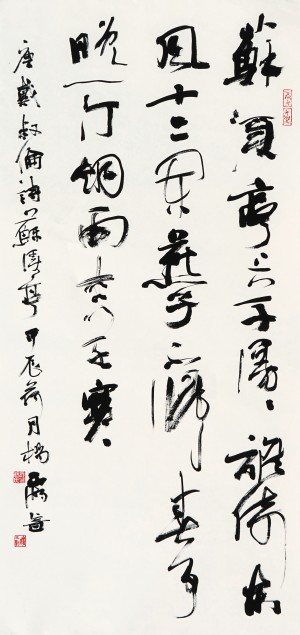 蘇溪亭上草漫漫誰倚東
風十二闌燕子不歸春事
晚一汀烟雨杏花寒
唐戴叔倫詩蘇溪亭甲辰荷月楊